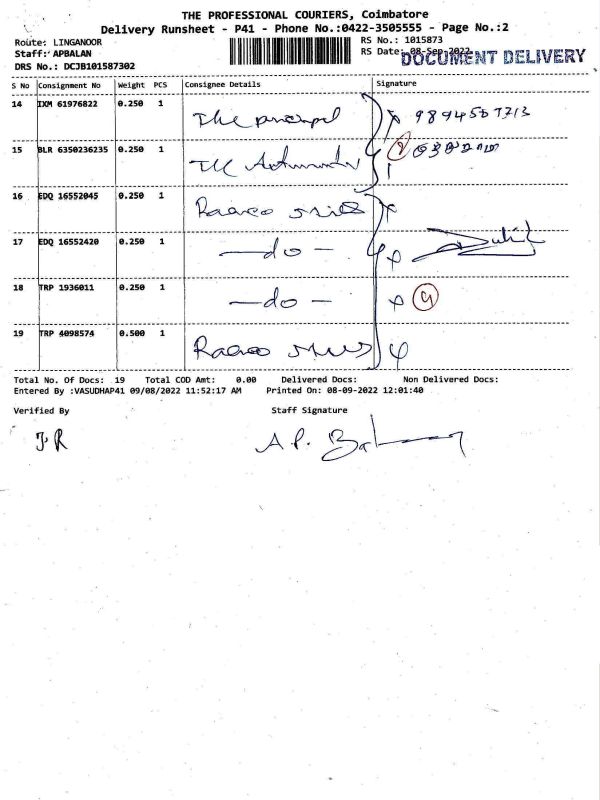 THE PROFESSIONAL COURIERS, Coimbatore
Delivery Runsheet - P41 - Phone No.:0422-3505555 - Page No.:2
Route: LINGANOOR
RS No.: 1015873
Staff: APBALAN
RS Date: 08-Sep-2022
DOCUMENT DELIVERY
DRS No.: DCJB101587302
S No Consignment No Weight PCS Consignee Details Signature
14 IXM 61976822 0.250 1 The principal
15 BLR 6350236235 0.250 1 The
16 EDQ 16552045 0.250 1
17 EDQ 16552420 0.250 1 —do—
18 TRP 1936011 0.250 1 —do—
19 TRP 4098574 0.500 1
Total No. Of Docs: 19 Total COD Amt: 0.00 Delivered Docs: Non Delivered Docs:
Entered By :VASUDHAP41 09/08/2022 11:52:17 AM Printed On: 08-09-2022 12:01:40
Verified By Staff Signature
J.R A.P.